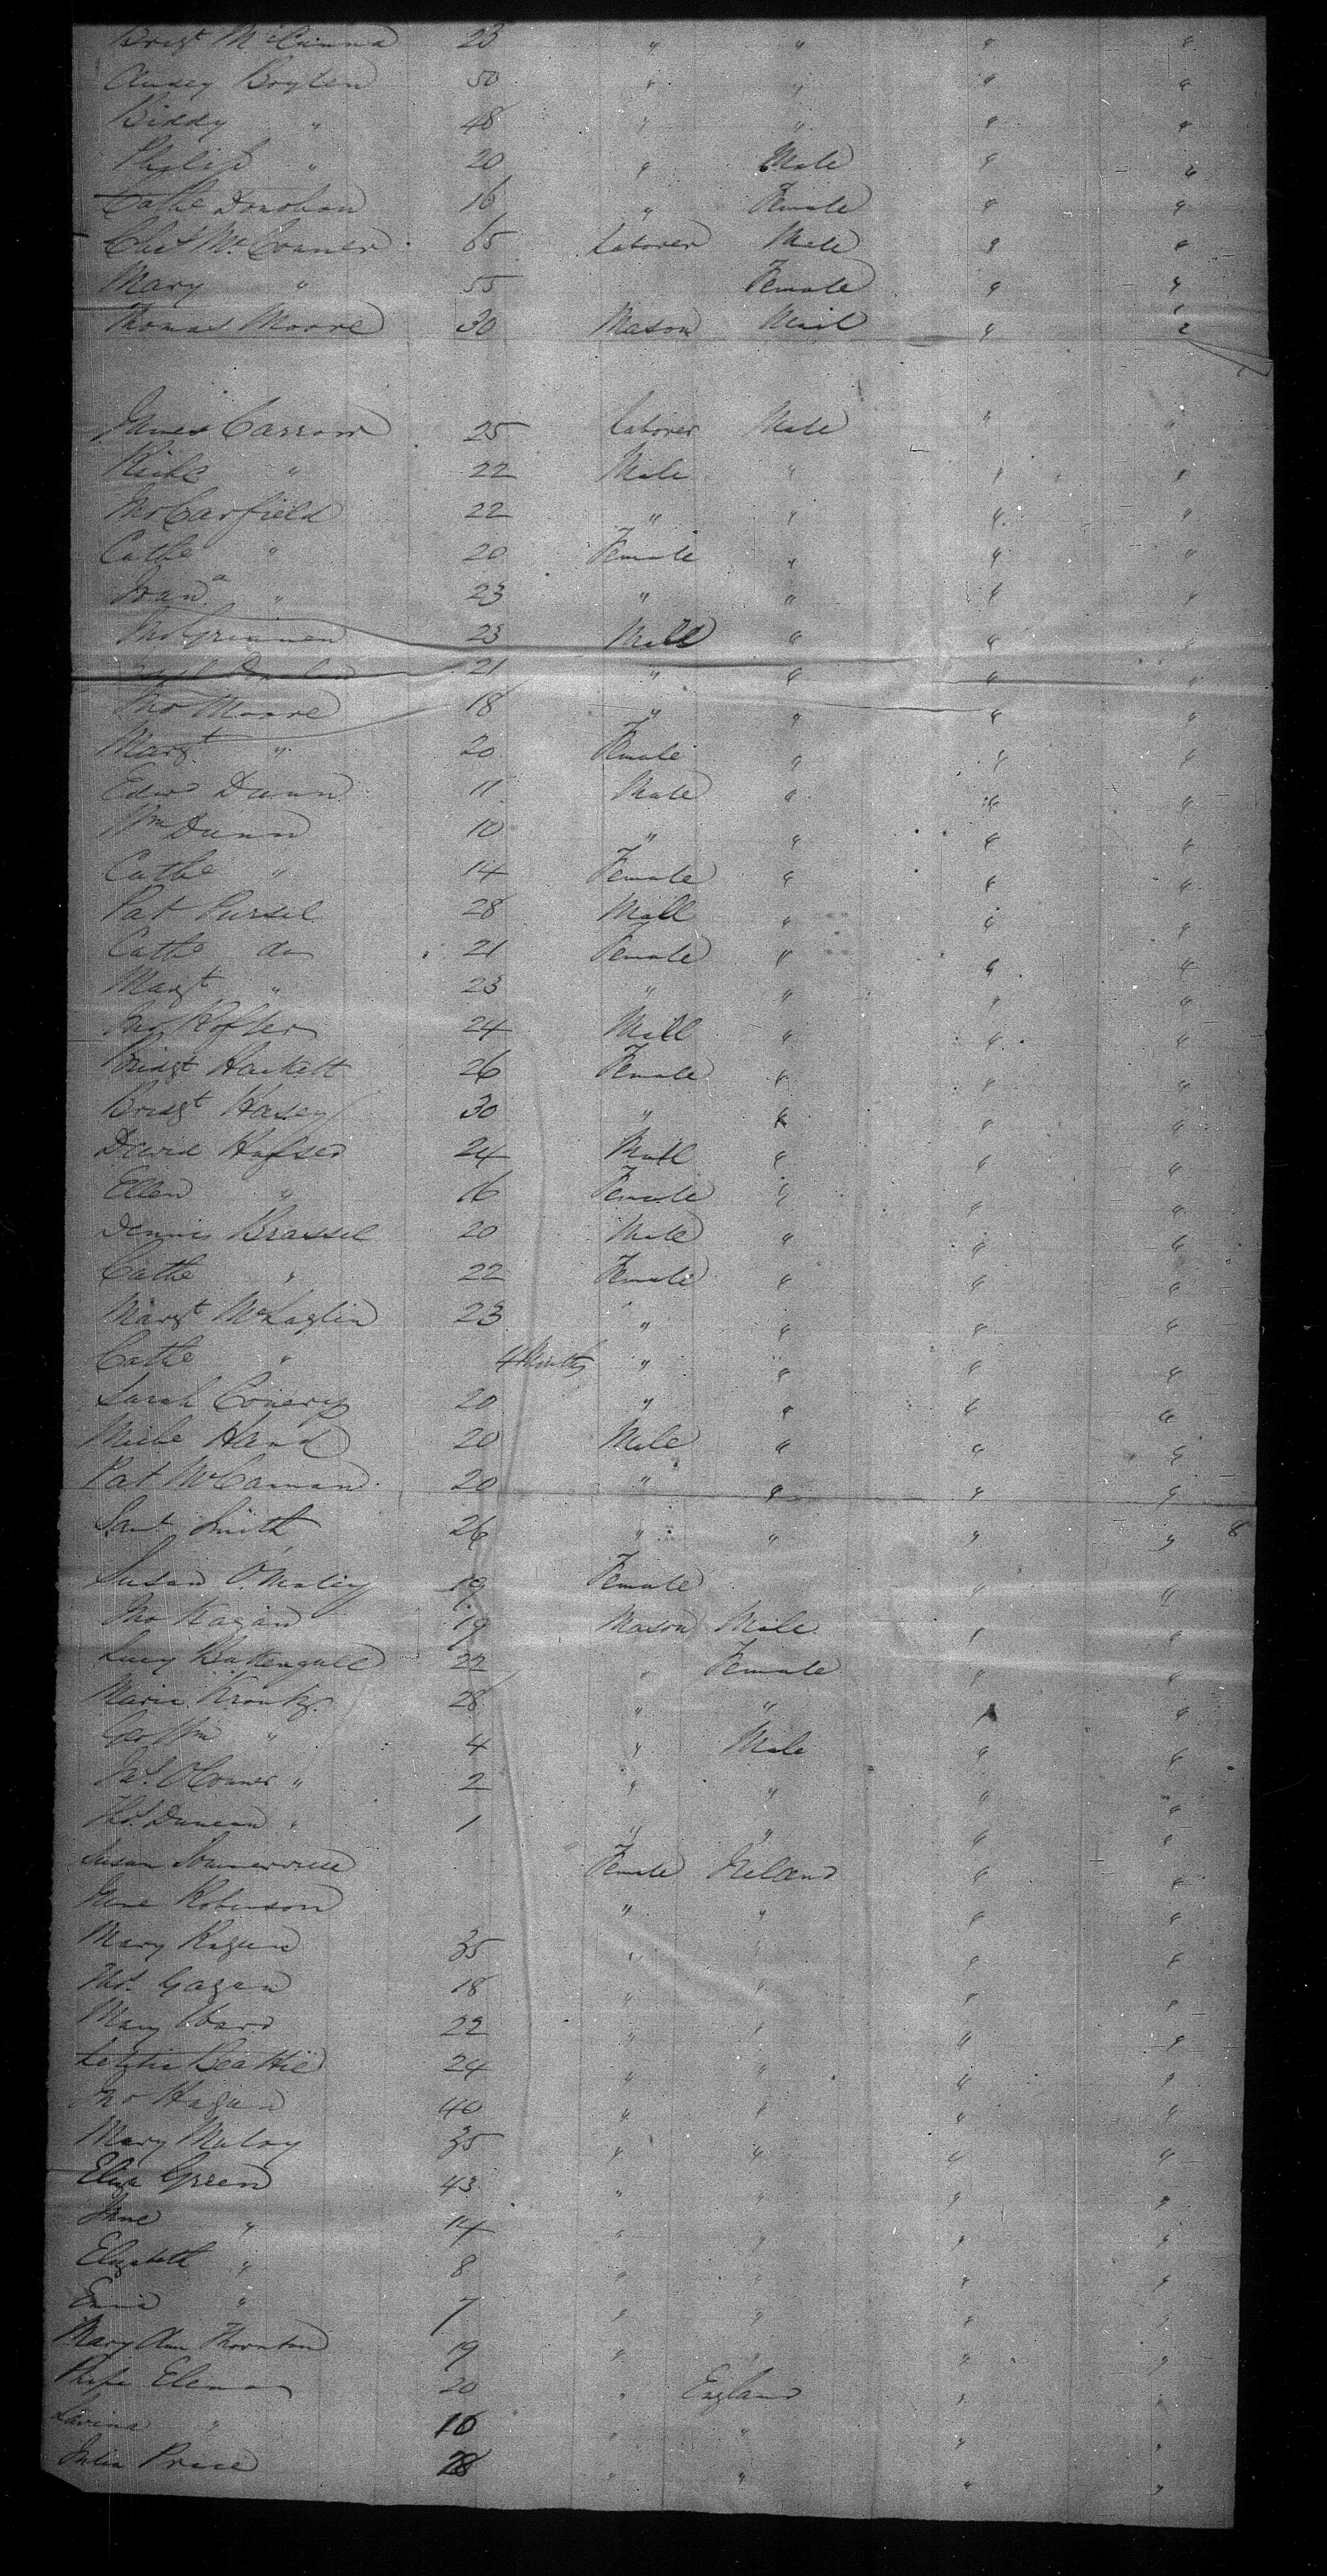 Bridgt McCanna 23 " " " "
Boylen 50 " " " "
Biddy " 48 " " " "
Philip " 20 " Male " "
Cathe Donohan 16 " Female " "
McConner 65 Laborer Male " "
Mary " 55 Female " "
Thomas Moore 30 Mason Mail " "
James Carrow 25 Laborer Male " "
" 22 Male " " "
Jno Garfield 22 " " " "
Cathe " 20 Female " " "
" 23 " " " "
23 Male " " "
21 " " " "
Jno Moore 18 " " " "
Margt " 20 Female " " "
Edwd Dunn 11 Male " " "
Wm Dunn 10 " " " "
Cathe " 14 Female " " "
Pat Pursel 28 Mall " " "
Cathe do 21 Female " " "
Margt " 23 " " " "
Jno 24 Mall " " "
Bridgt Hackett 26 Female " " "
Bridgt Hasey 30 " " " "
David 24 Mall " " "
Ellen " 16 Female " " "
Dennis Brassel 20 Male " " "
Cathe " 22 Female " " "
Margt McLaglin 23 " " " "
Cathe " 4 Months " " " "
Sarah Conery 20 " " " "
Miche Hand 20 Male " " "
Pat McCannan 20 " " " "
Saml Smith 26 " " " " 8
Susan O'Maley 19 Female " "
Jno Kagan 19 Mason Male " "
Lucy 22 " Female " "
Maria Krontz 28 " " " "
Geo Wm " 4 " Male " "
Jas. OConner " 2 " " " "
Thos. Duncan " 1 " " " "
Susan Somerville Female Ireland " "
Jane Robinson " " " "
Mary Ragan 35 " " " "
Gagen 18 " " " "
Mary Ward 22 " " " "
Letitia Beattie 24 " " " "
Jno Hagan 40 " " " "
Mary Maloy 35 " " " "
Eliza Green 43 " " " "
Jane " 14 " " " "
Elizabeth " 8 " " " "
" 7 " " " "
Mary Ann Thornton 19 " " " "
20 " England " "
Lavina " 16 " " " "
Julia Price 28 " " " "